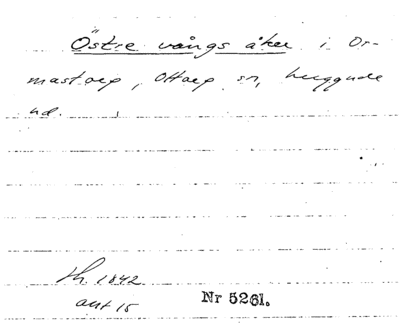 Östre vångs åker i Or-
mastorp, Ottarp sn, Luggude
hd.
lh. 1842
akt 15
Nr 5261.